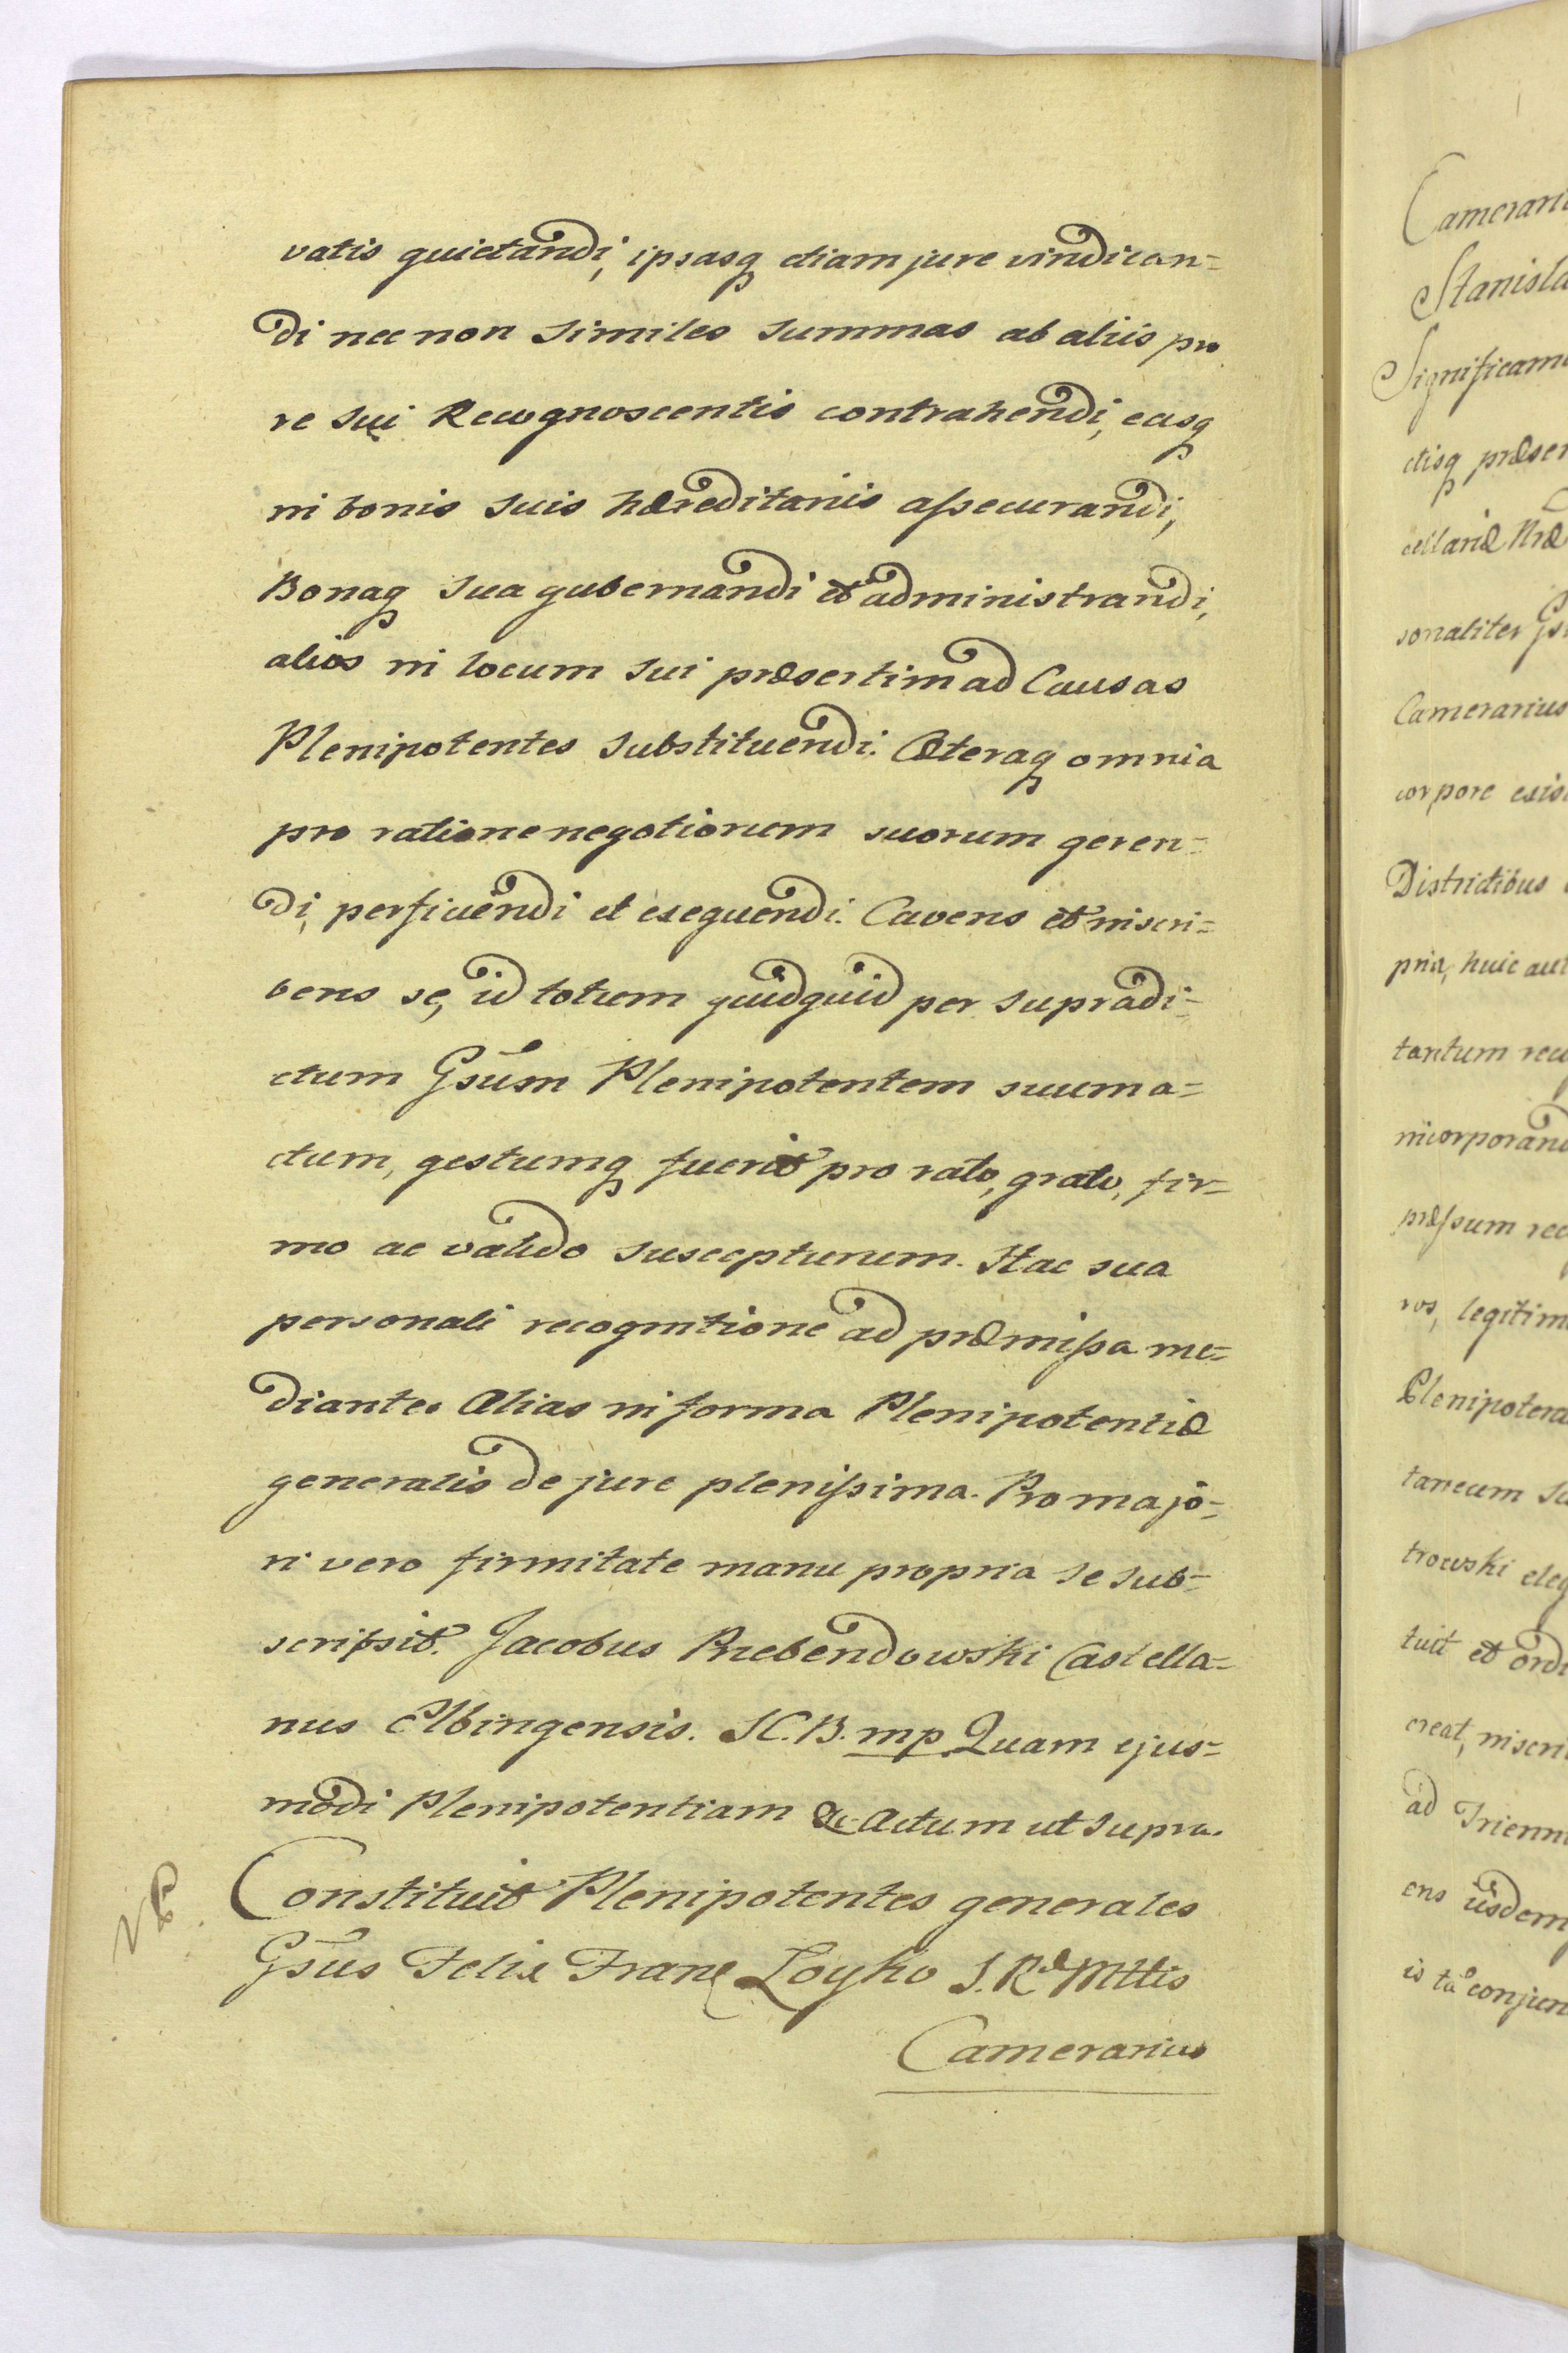 vatis quietandi, ipsasq etiam jure vindican=
di nec non similes summas ab aliis pro
re sui Recognoscentis contrahendi, easq
in bonis suis hæreditariis assecurandi,
Bonaq sua gubernandi et administrandi,
alios in locum sui præsertim ad Causas
Plenipotentes substituendi. Cæteraq omnia
pro ratione negotiorum suorum geren=
di, perficiendi et exequendi. Cavens et inscri=
bens se, id totum quidquid per supradi=
ctum Gsum Plenipotentem suum a=
ctum, gestumq fuerit pro rato, grato, fir=
mo ac valido suscepturum. Hac sua
personali recognitione ad præmissa me=
diante. Alias in forma Plenipotentiæ
generalis de jure plenissima. Pro majo=
ri vero firmitate manu propria se sub=
scripsit. Jacobus Przebendowski Castella=
nus Elbingensis. K.B. mp Quam ejus=
modi Plenipotentiam &c Actum ut supra.
Constituit Plenipotentes generales
Gsus Felix Franc Loyko S.R. Mttis
Camerarius
Camerari
Stanisla
Significam
ctisq præser
cellariæ Nræ
sonaliter Gs
Camerarius
corpore exis
Districtibus
pria, huic aut
tantum rec
incorporand
præssum rec
ros, legitim
Plenipoten
taneum
trowski eleg
tuit et ordi
creat, inscri
ad Trienn
ens iisdem
is ta conjun